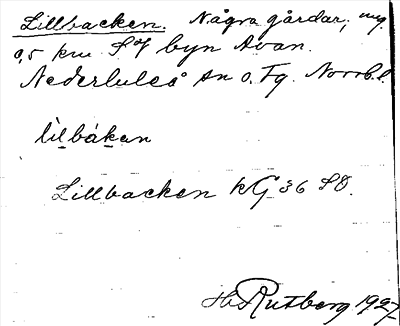 Lillbacken. Några gårdar, ung.
0,5 km S of byn Avan.
Nederluleå sn o. Tg. Norrb. l.
lilbakan
Lillbacken kG 36 SO.
Hj Rutberg 1927